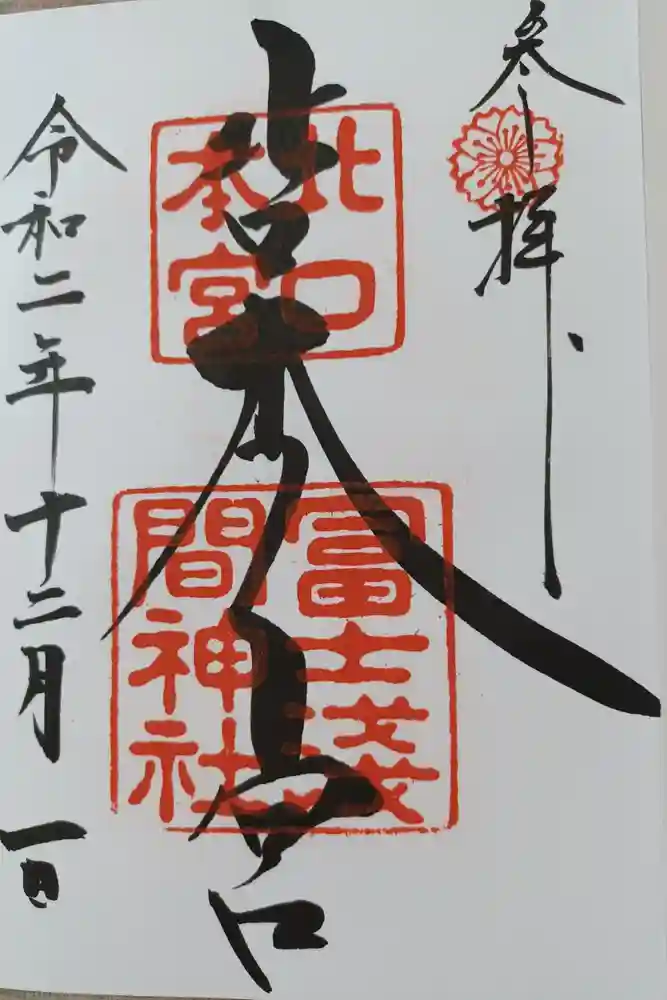 参拝
北口本宮
北口
本宮
冨士浅
間神社
令和二年十二月一日